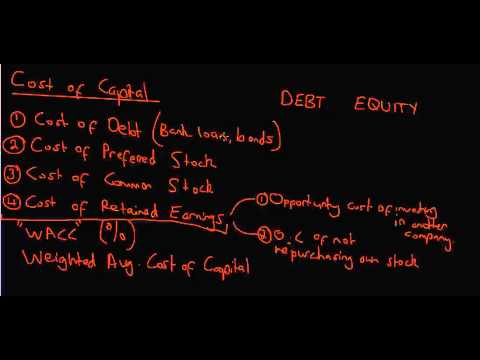 Cost of Capital
DEBT EQUITY
① Cost of Debt (Bank loans, bonds)
② Cost of Preferred Stock
③ Cost of Common Stock
④ Cost of Retained Earnings
① Opportunity cost of investing
in another
company.
② O.C of not
repurchasing own stock
"WACC" (%)
Weighted Avg. Cost of Capital